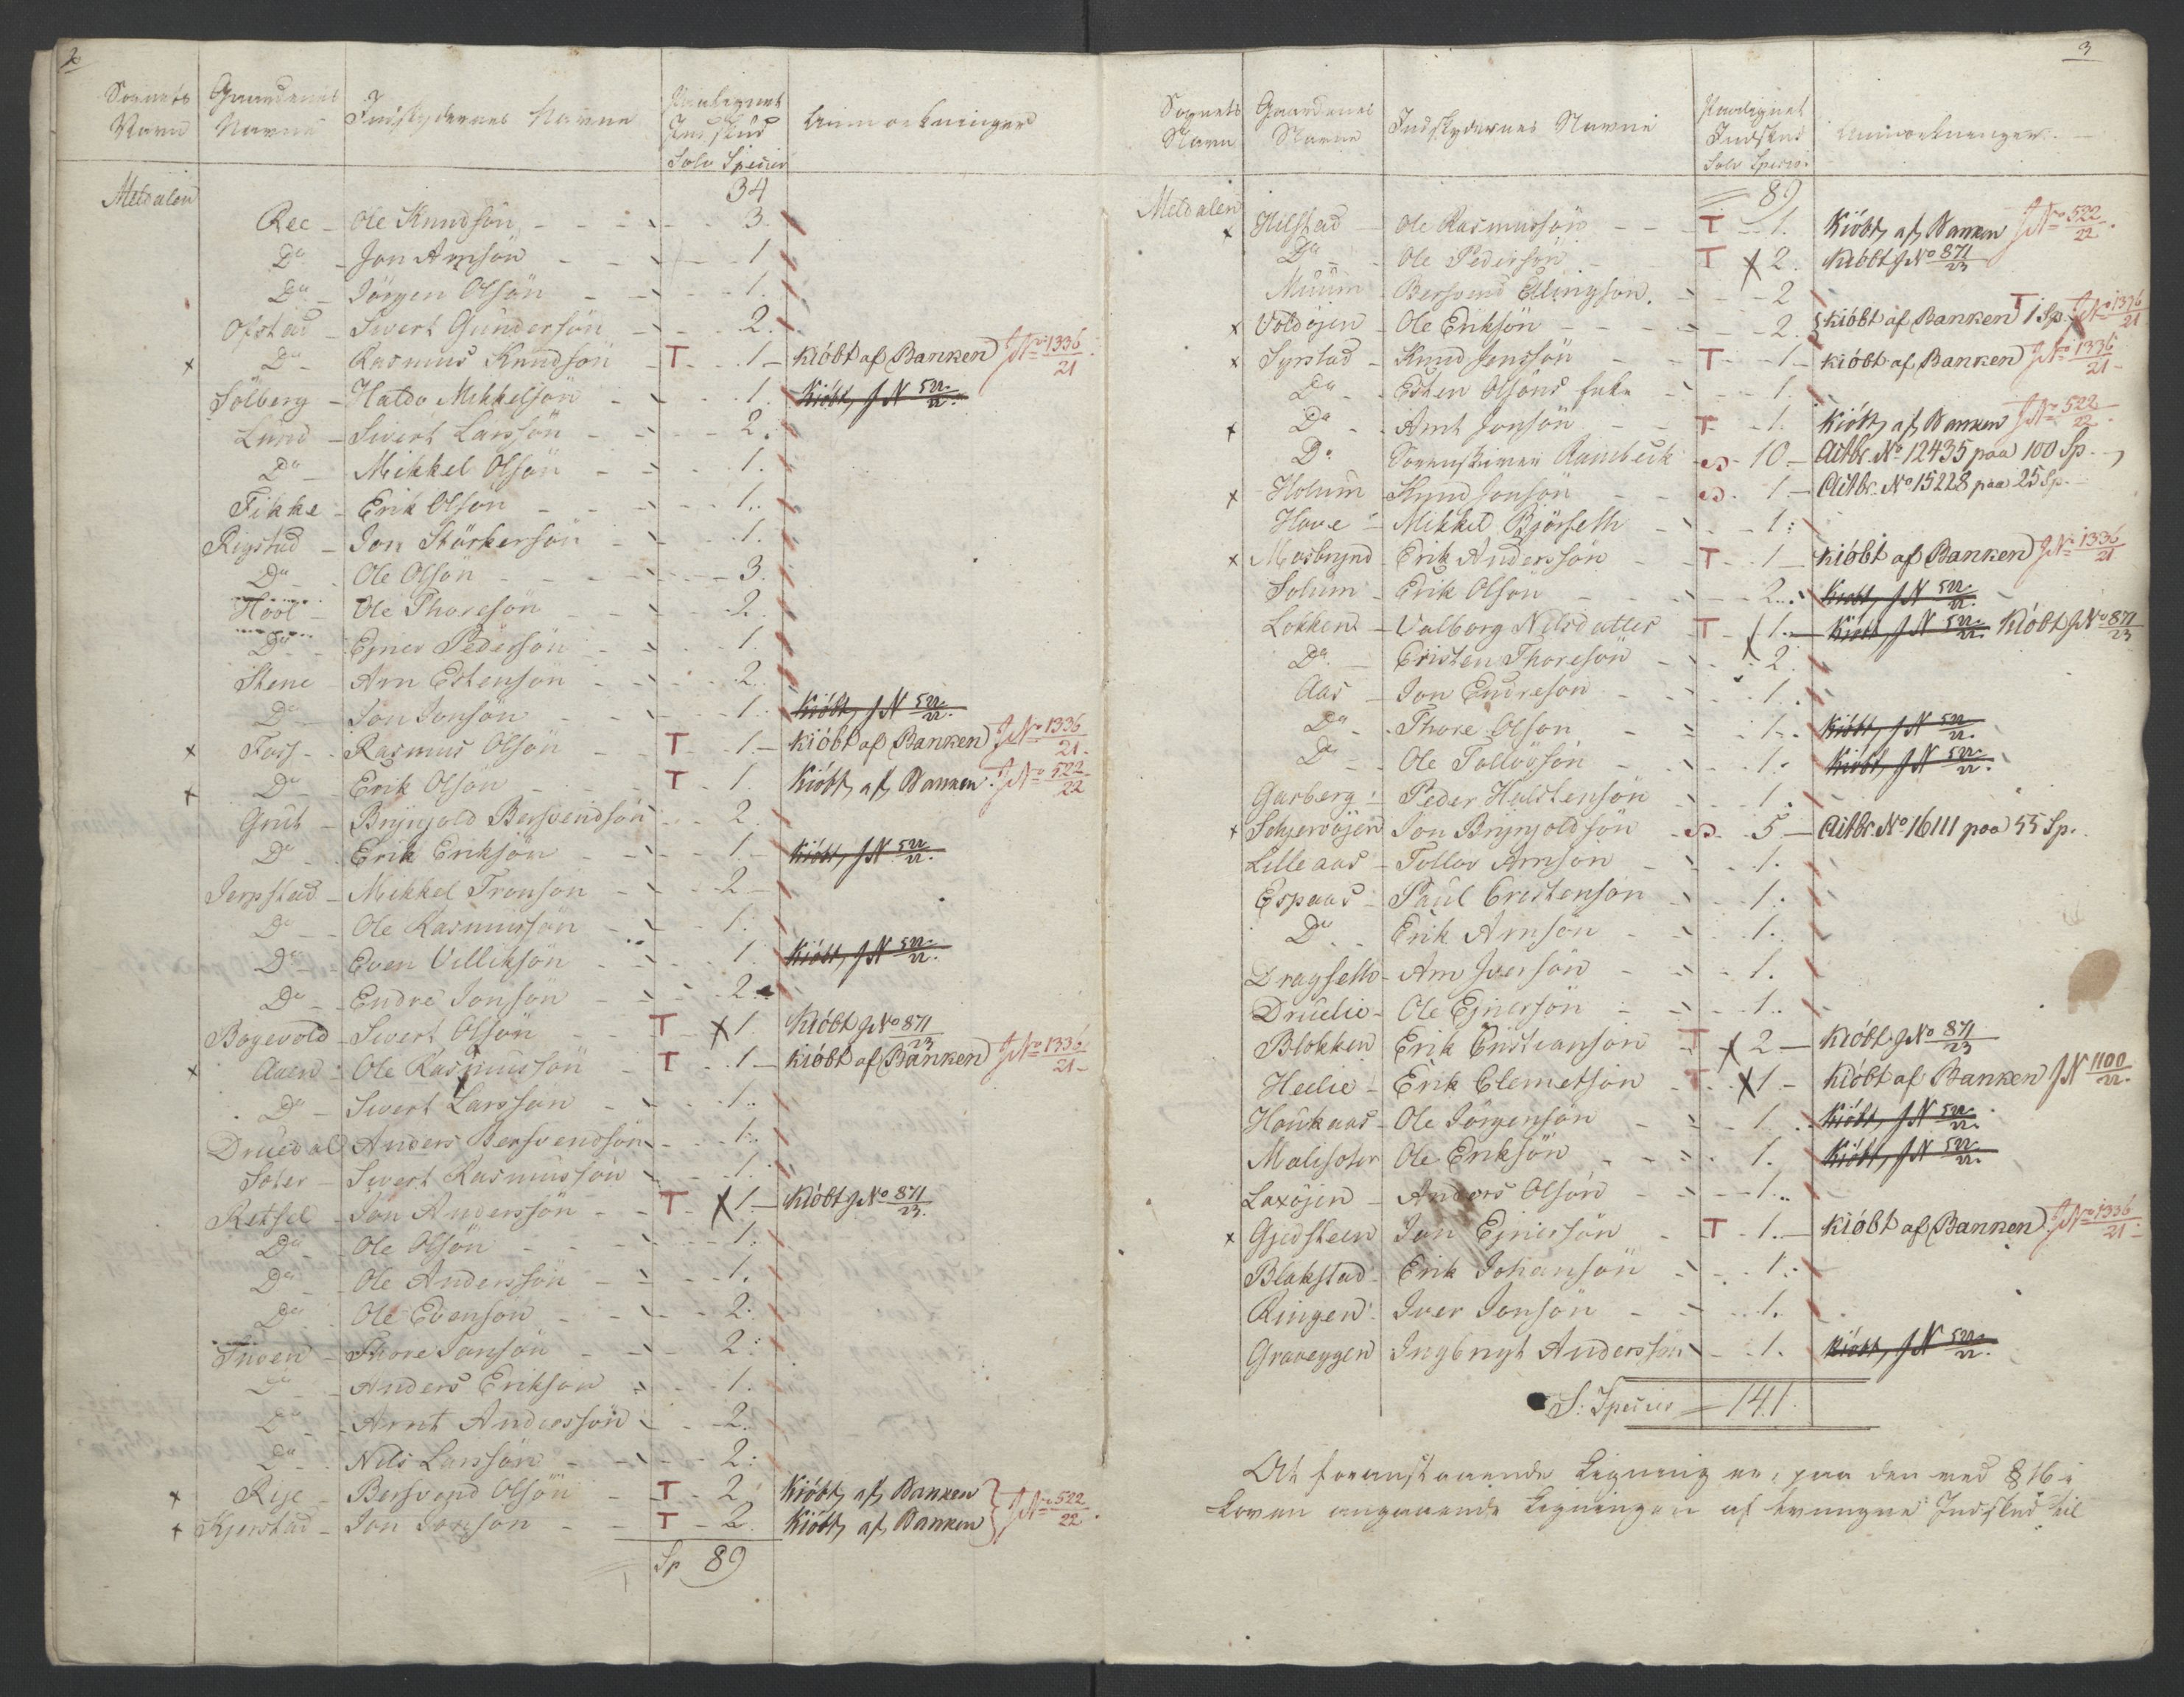 2
Sognets Navn | Gaardenes Navne | Indskydernes Navne | Paalignet Indskud Solv Species | Anmærkninger
Meldalen 34
Ree - Ole Knudsön - 3.
Do - Jon Arnsön - 1
Do - Jörgen Olsön - 1.
Ofstad - Sivert Gundersön - 2.
x Do - Rasmus Knudsön - T - 1 - kióbt af Banken JNo 1336/21
Sölberg - Haldo Mikkelsön - 1. Kióbt, JN 522/22.
Lund - Sivert Larssön - 2.
Do - Mikkel Olsön - 1.
Fikke - Erik Olsön - 1.
Rigstad - Jon Störkersön - 1.
Do - Ole Olsön - 3.
Hool - Ole Thoresön - 2.
Do - Ejner Pedersön - 1.
Stene - Arn Estensön - 2.
Do - Jon Jonsön - 1. Kióbt, JN 522/22.
x Foss - Rasmus Olsön - T - 1 - kióbt af Banken JNo 1336/21.
x Do - Erik Olsön - T - 1. Kióbt af Banken. JNo 522/22
Grut - Brynjold Bersvendsön - 2.
Do - Erik Eriksön - 1. Kióbt, JN 522/22.
Jerpstad - Mikkel Tronsön - 2 -
Do - Ole Rasmussön - 1.
Do - Even Villiksön - 1. Kióbt, JN 522/22.
Do - Endre Jonsön - 2.
Bogevold - Sivert Olsön - T x 1. Kióbt JNo 871/23
x Aaen - Ole Rasmussön - T - 1 - kióbt af Banken JNo 1336/21
Do - Sivert Larssön - 1.
Druedal - Anders Bersvendsön - 1.
Soter - Sivert Rasmussön - 1.
Retsel - Jon Anderssön - T x 1 - Kióbt JNo 871/23.
Do - Ole Olsön - 1.
Do - Ole Anderssön - 1.
Do - Ole Evensön - 2.
- Thore Jonsön - 2.
Do - Anders Eriksön - 1.
Do - Arnt Anderssön - 2.
Do - Nils Larssön - 2.
x Rise - Bersvend Olsön - T - 2 Kióbt af Banken } JNo 522/22.
x Kjerstad - Jon Jonsön - T - 2. Kióbt af Banken
Sp 89
3
Sognets Navn | Gaardenes Navne | Indskydernes Navne | Paalignet Indskud Solv Species | Anmærkninger.
Meldalen 89
x Hilstad - Ole Rasmussön - T - 1. Kióbt af Banken JNo 522/22.
Do - Ole Pedersön - T x 2. Kióbt JNo 871/23
Muum - Bersvend Ellingsön. - 2
x Voldöjen - Ole Eriksön - 2. kióbt af Banken T 1 Sp. JNo 1336/21
x Syrstad - Knud Jenssön - T - 1 - kióbt af Banken JNo 1336/21
Do - Esten Olsöns Enke - 1.
x Do - Arnt Jonsön - T - 1. Kióbt af Banken JNo 522/22
Do Sorenskriver Rambech - 10 - Actbr. No 12435 paa 100 Sp.
x Holum - Knud Jonsön - 1 - Actbr. No 15228 paa 25 Sp.
Hove - Mikkel Björseth - 1.
x Mosbrynd - Erik Anderssön - T - 1 - kióbt af Banken JNo 1336/21
Solum - Erik Olsön - 2. Kióbt, JN 522/22.
Lökken - Valborg Nilsdatter - T - x 1. - Kióbt, JN 522/22. Kióbt JNo 871/23
Do - Cristen Thoresön - 2.
Aas - Jon Endresön - 1.
Do - Thore Olsön - 1. Kióbt, JN 522/22.
Do - Ole Tollövsön - 1. Kióbt, JN 522/22.
Garberg - Peder Halstensön - 1.
x Schjervöjen Jon Brynjoldsön - 5 - Actbr. No 16111 paa 55 Sp.
Lilleaas - Tollov Arnsön - 1.
Espaas - Paul Cristensön - 1.
Do - Erik Arnsön - 1.
Dragseth - Arn Iversön - 1.
Druelie - Ole Ejnersön - 1.
Blokken - Erik Cristiansön - T x 2 - Kióbt JNo 871/23
Heelie - Erik Clemetsön - T x 1 - Kióbt af Banken JN 1100/22.
Houkaas - Ole Jörgensön - 1. Kióbt, JN 522/22.
Malisoter Ole Eriksön - 1. Kióbt, JN 522/22.
Laxöjen - Anders Olsön - 1.
x Gjedsteen Jon Ejnersön - T - 1. - kióbt af Banken JNo 1336/21
Blokstad - Erik Johansön - 1.
Ringen - Iver Jonsön - 1.
Graveggen Ingbrigt Anderssön - 1. Kióbt, JN 522/22.
S. Species - 141.
At foranstaaende Ligning er, paa den ved § 16 i
Loven angaaende Ligningen af tvungne Indskud til